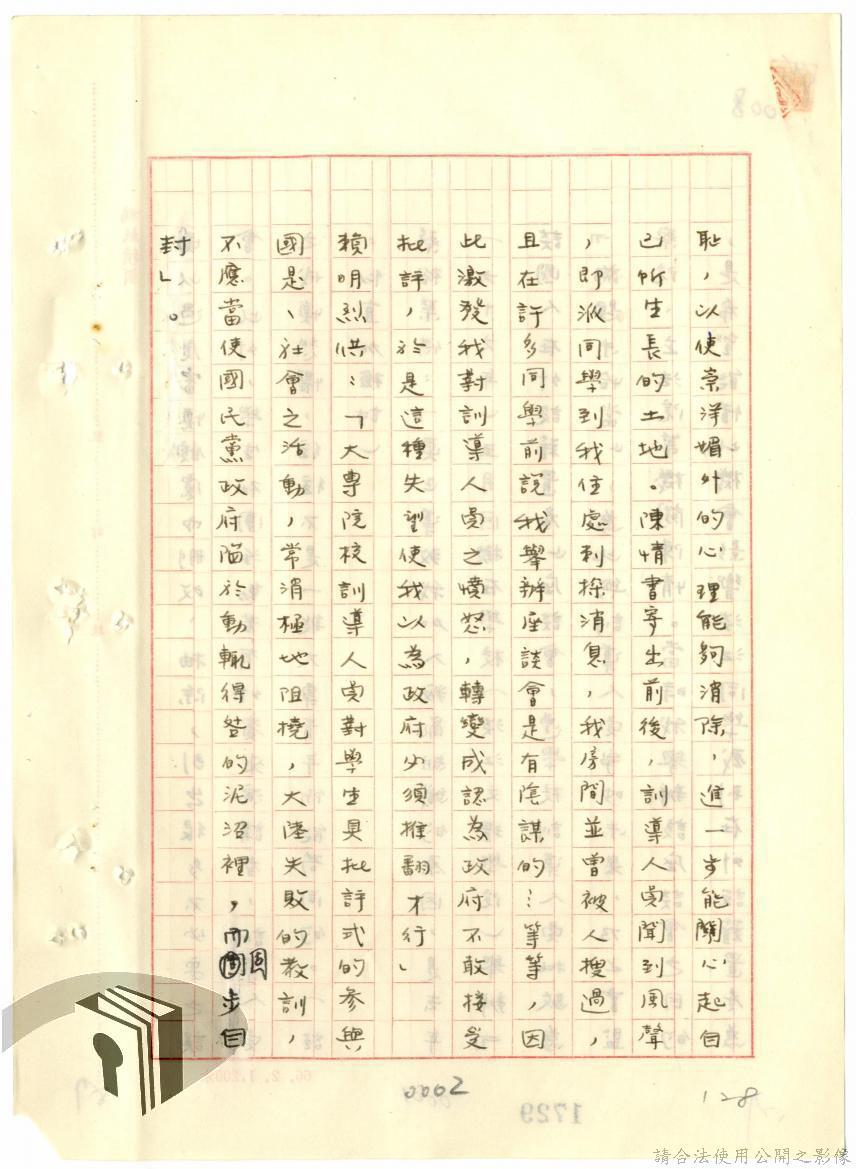 恥，以使崇洋媚外的心理能夠消除，進一步能關心起自
已所生長的土地。陳情書寄出前後，訓導人員聞到風聲
，即派同學到我住處刺探消息，我房間並曾被人搜過，
且在許多同學前說我舉辦座談會是有陰謀的…等等，因
此激發我對訓導人員之憤怒，轉變成認為政府不敢接受
批評，於是這種失望使我以為政府必須推翻才行」
賴明烈供：「大專院校訓導人員對學生具批評式的參與
國是、社會之活動，常消極地阻撓，大陸失敗的教訓，
不應當使國民黨政府陷於動輒得咎的泥沼裡，而固步自
封」。
0002
128
1729
008
66. 2. 1,200
請合法使用公開之影像